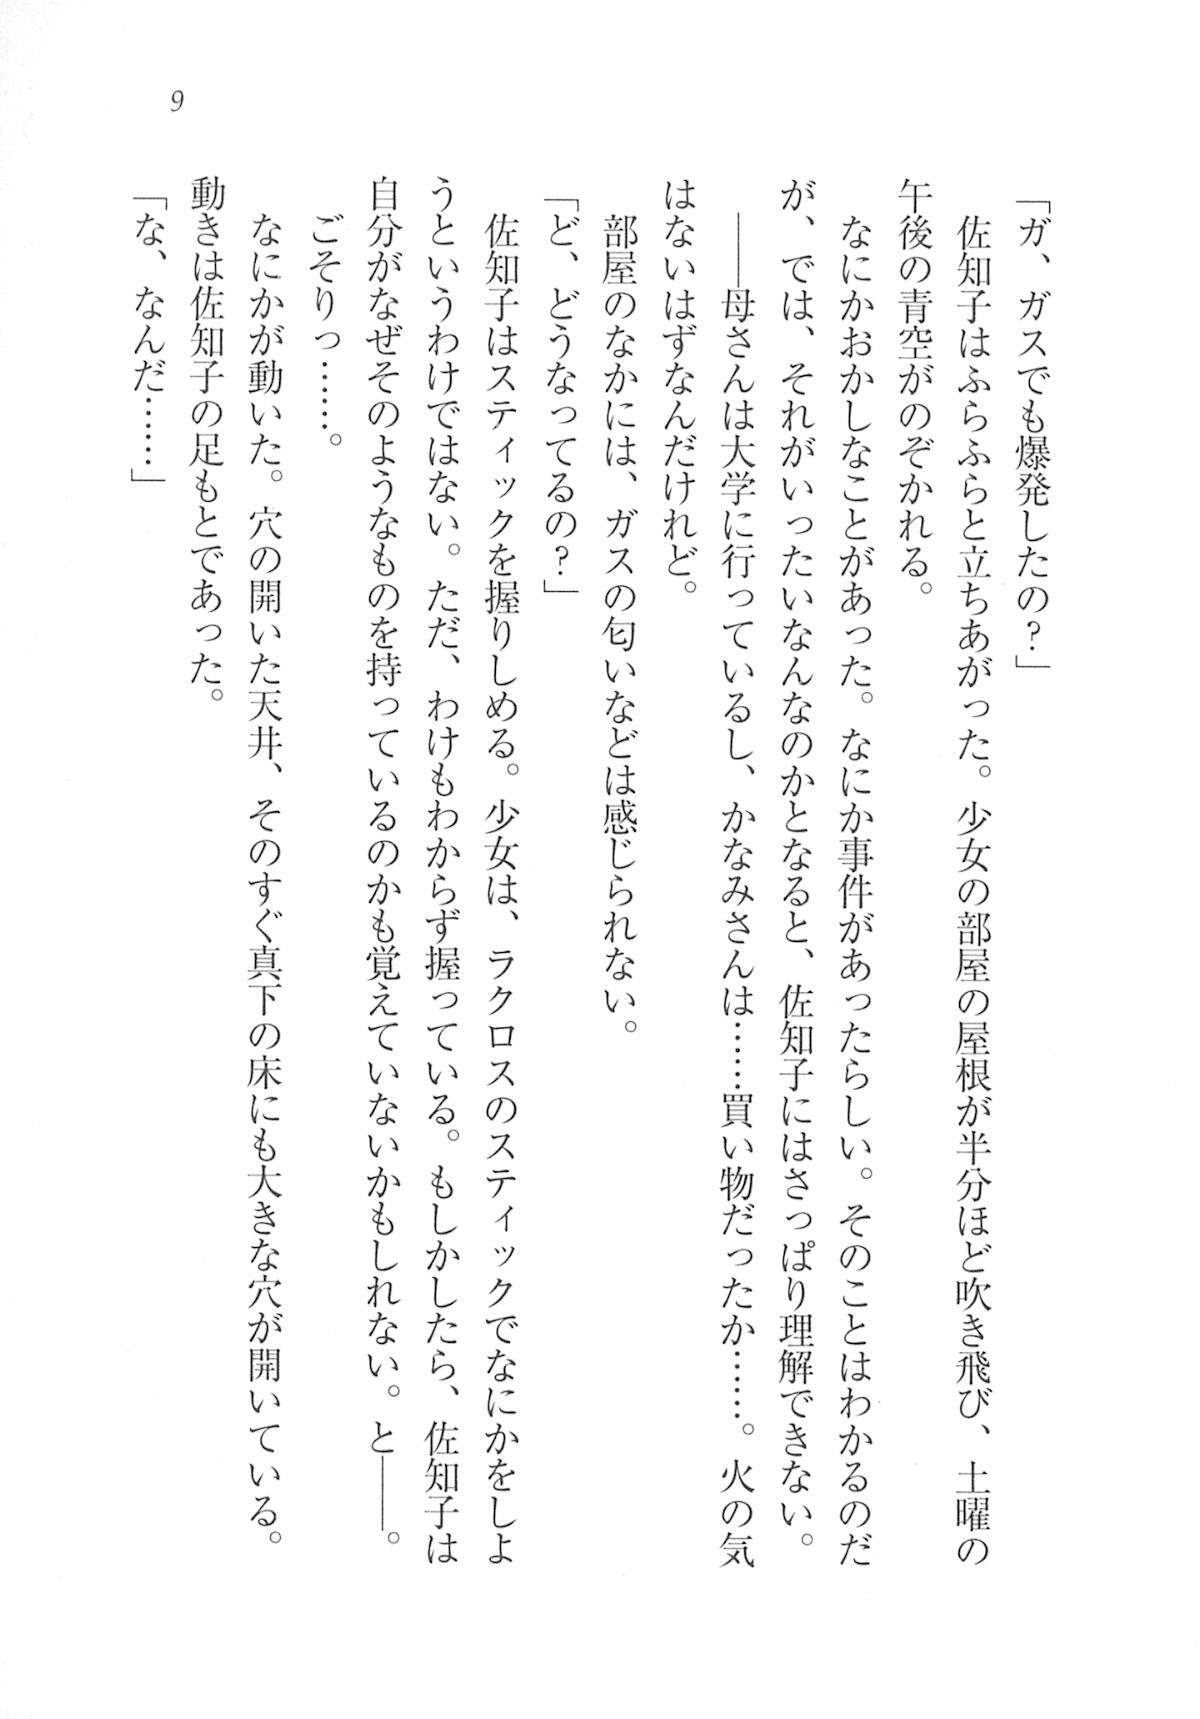 9
「ガ、ガスでも爆発したの？」
佐知子はふらふらと立ちあがった。少女の部屋の屋根が半分ほど吹き飛び、土曜の
午後の青空がのぞかれる。
なにかおかしなことがあった。なにか事件があったらしい。そのことはわかるのだ
が、では、それがいったいなんなのかとなると、佐知子にはさっぱり理解できない。
――母さんは大学に行っているし、かなみさんは……買い物だったか……。火の気
はないはずなんだけれど。
部屋のなかには、ガスの匂いなどは感じられない。
「ど、どうなってるの？」
佐知子はスティックを握りしめる。少女は、ラクロスのスティックでなにかをしよ
うというわけではない。ただ、わけもわからず握っている。もしかしたら、佐知子は
自分がなぜそのようなものを持っているのかも覚えていないかもしれない。と――。
ごそりっ……。
なにかが動いた。穴の開いた天井、そのすぐ真下の床にも大きな穴が開いている。
動きは佐知子の足もとであった。
「な、なんだ……」